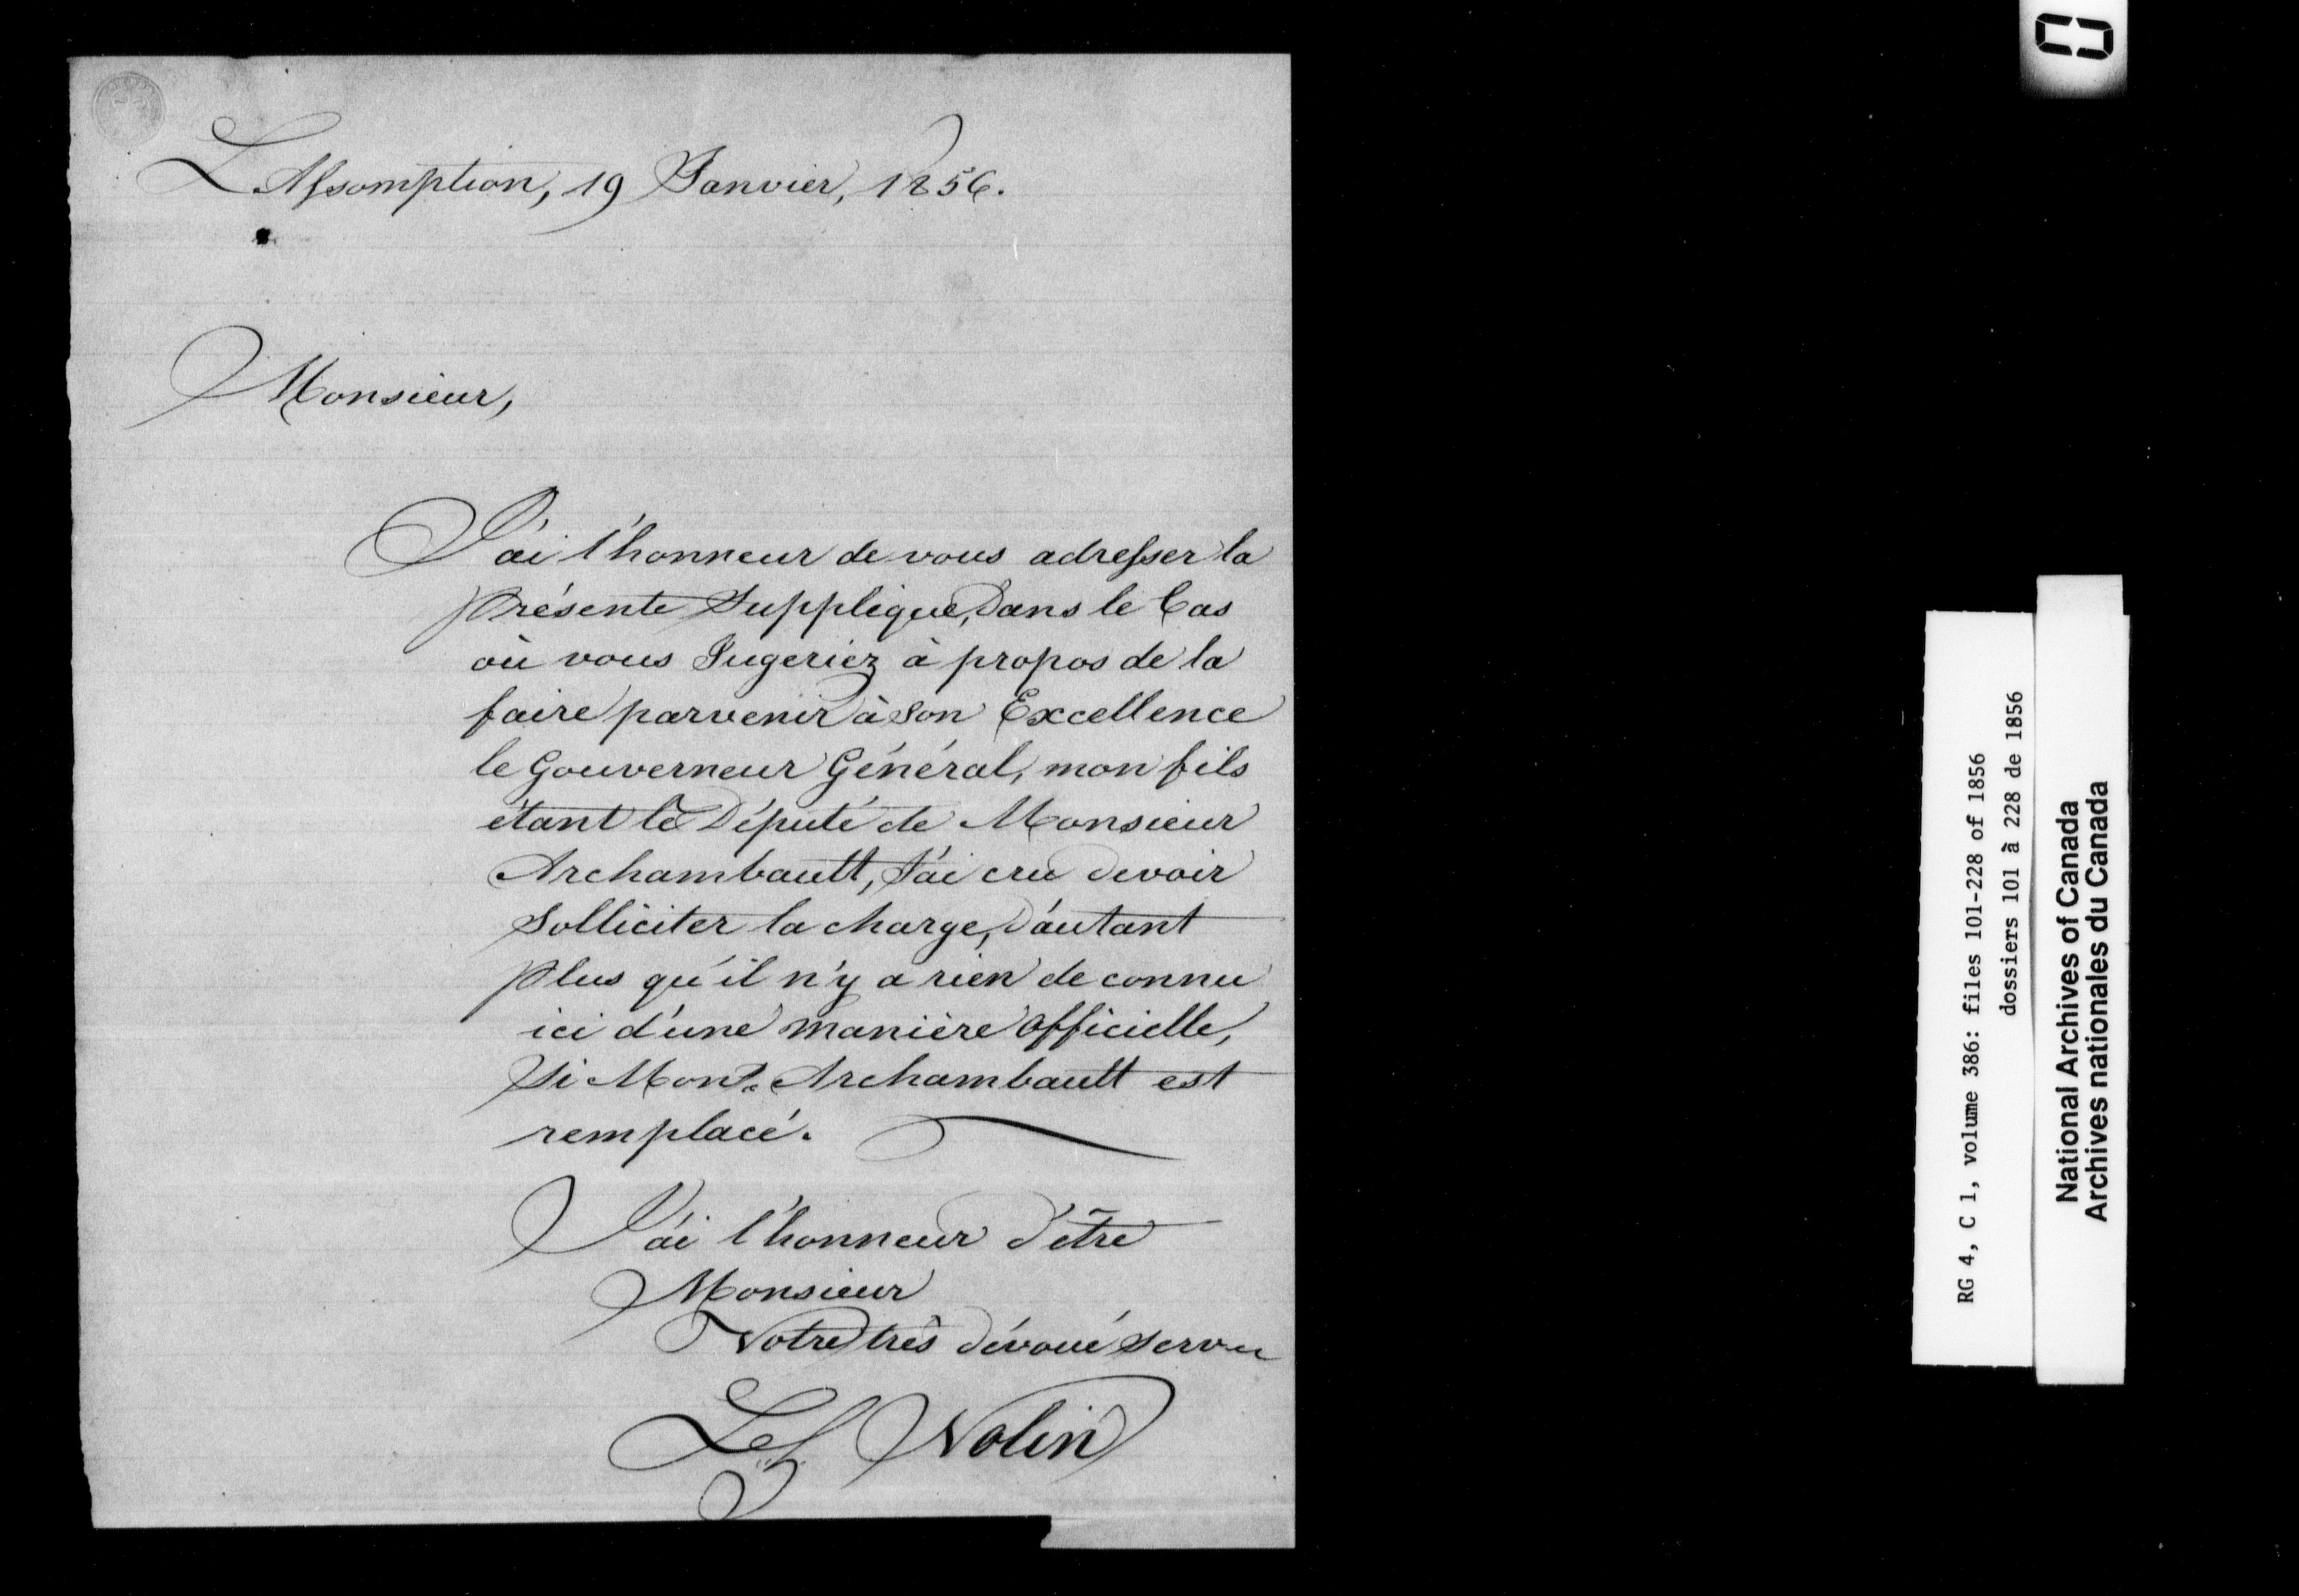 L'Assomption, 19 Janvier, 1856.
Monsieur,
J'ai l'honneur de vous adresser la
Présente Supplique, dans le Cas
où vous Jugeriez à propos de la
faire parvenir à Son Excellence
le Gouverneur Général, mon fils
étant le Député de Monsieur
Archambault, J'ai cru devoir
Solliciter la charge, d'autant
plus qu'il n'y a rien de connu
ici d'une manière officielle,
Si Monsr. Archambault est
remplacé.
J'ai l'honneur d'être
Monsieur
Votre très dévoué Serv
Nolin
RG 4, C 1, volume 386: files 101-228 of 1856
dossiers 101 à 228 de 1856
National Archives of Canada
Archives nationales du Canada